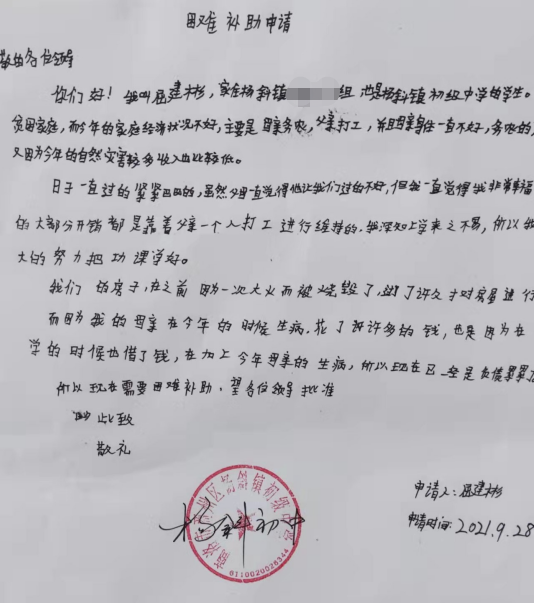 困难补助申请
敬的各位领导
你们好！我叫屈建彬，家在杨斜镇 组 也是杨斜镇初级中学的学生。
贫困家庭，而今年的家庭经济状况不好，主要是母亲务农，父亲打工，并且母亲身体一直不好，务农的
又因为今年的自然灾害较多收入也比较低。
日子一直过的紧紧巴巴的，虽然父母一直觉得他让我们过的不好，但我一直觉得我非常幸福
的大部分开销都是靠着父亲一个人打工进行维持的，我深知上学来之不易，所以我
大的努力把功课学好。
我们的房子，在之前因为一次大火而被烧毁了，过了许久才对房屋进行
而因为我的母亲在今年的时候生病，花了许许多的钱，也是因为在
学的时候也借了钱，在加上今年母亲的生病，所以现在已经是负债累累
所以现在需要困难补助，望各位领导批准
此致
敬礼
杨斜初中
区杨斜镇初级中学
6110020026344
申请人：屈建彬
申请时间：2021.9.28